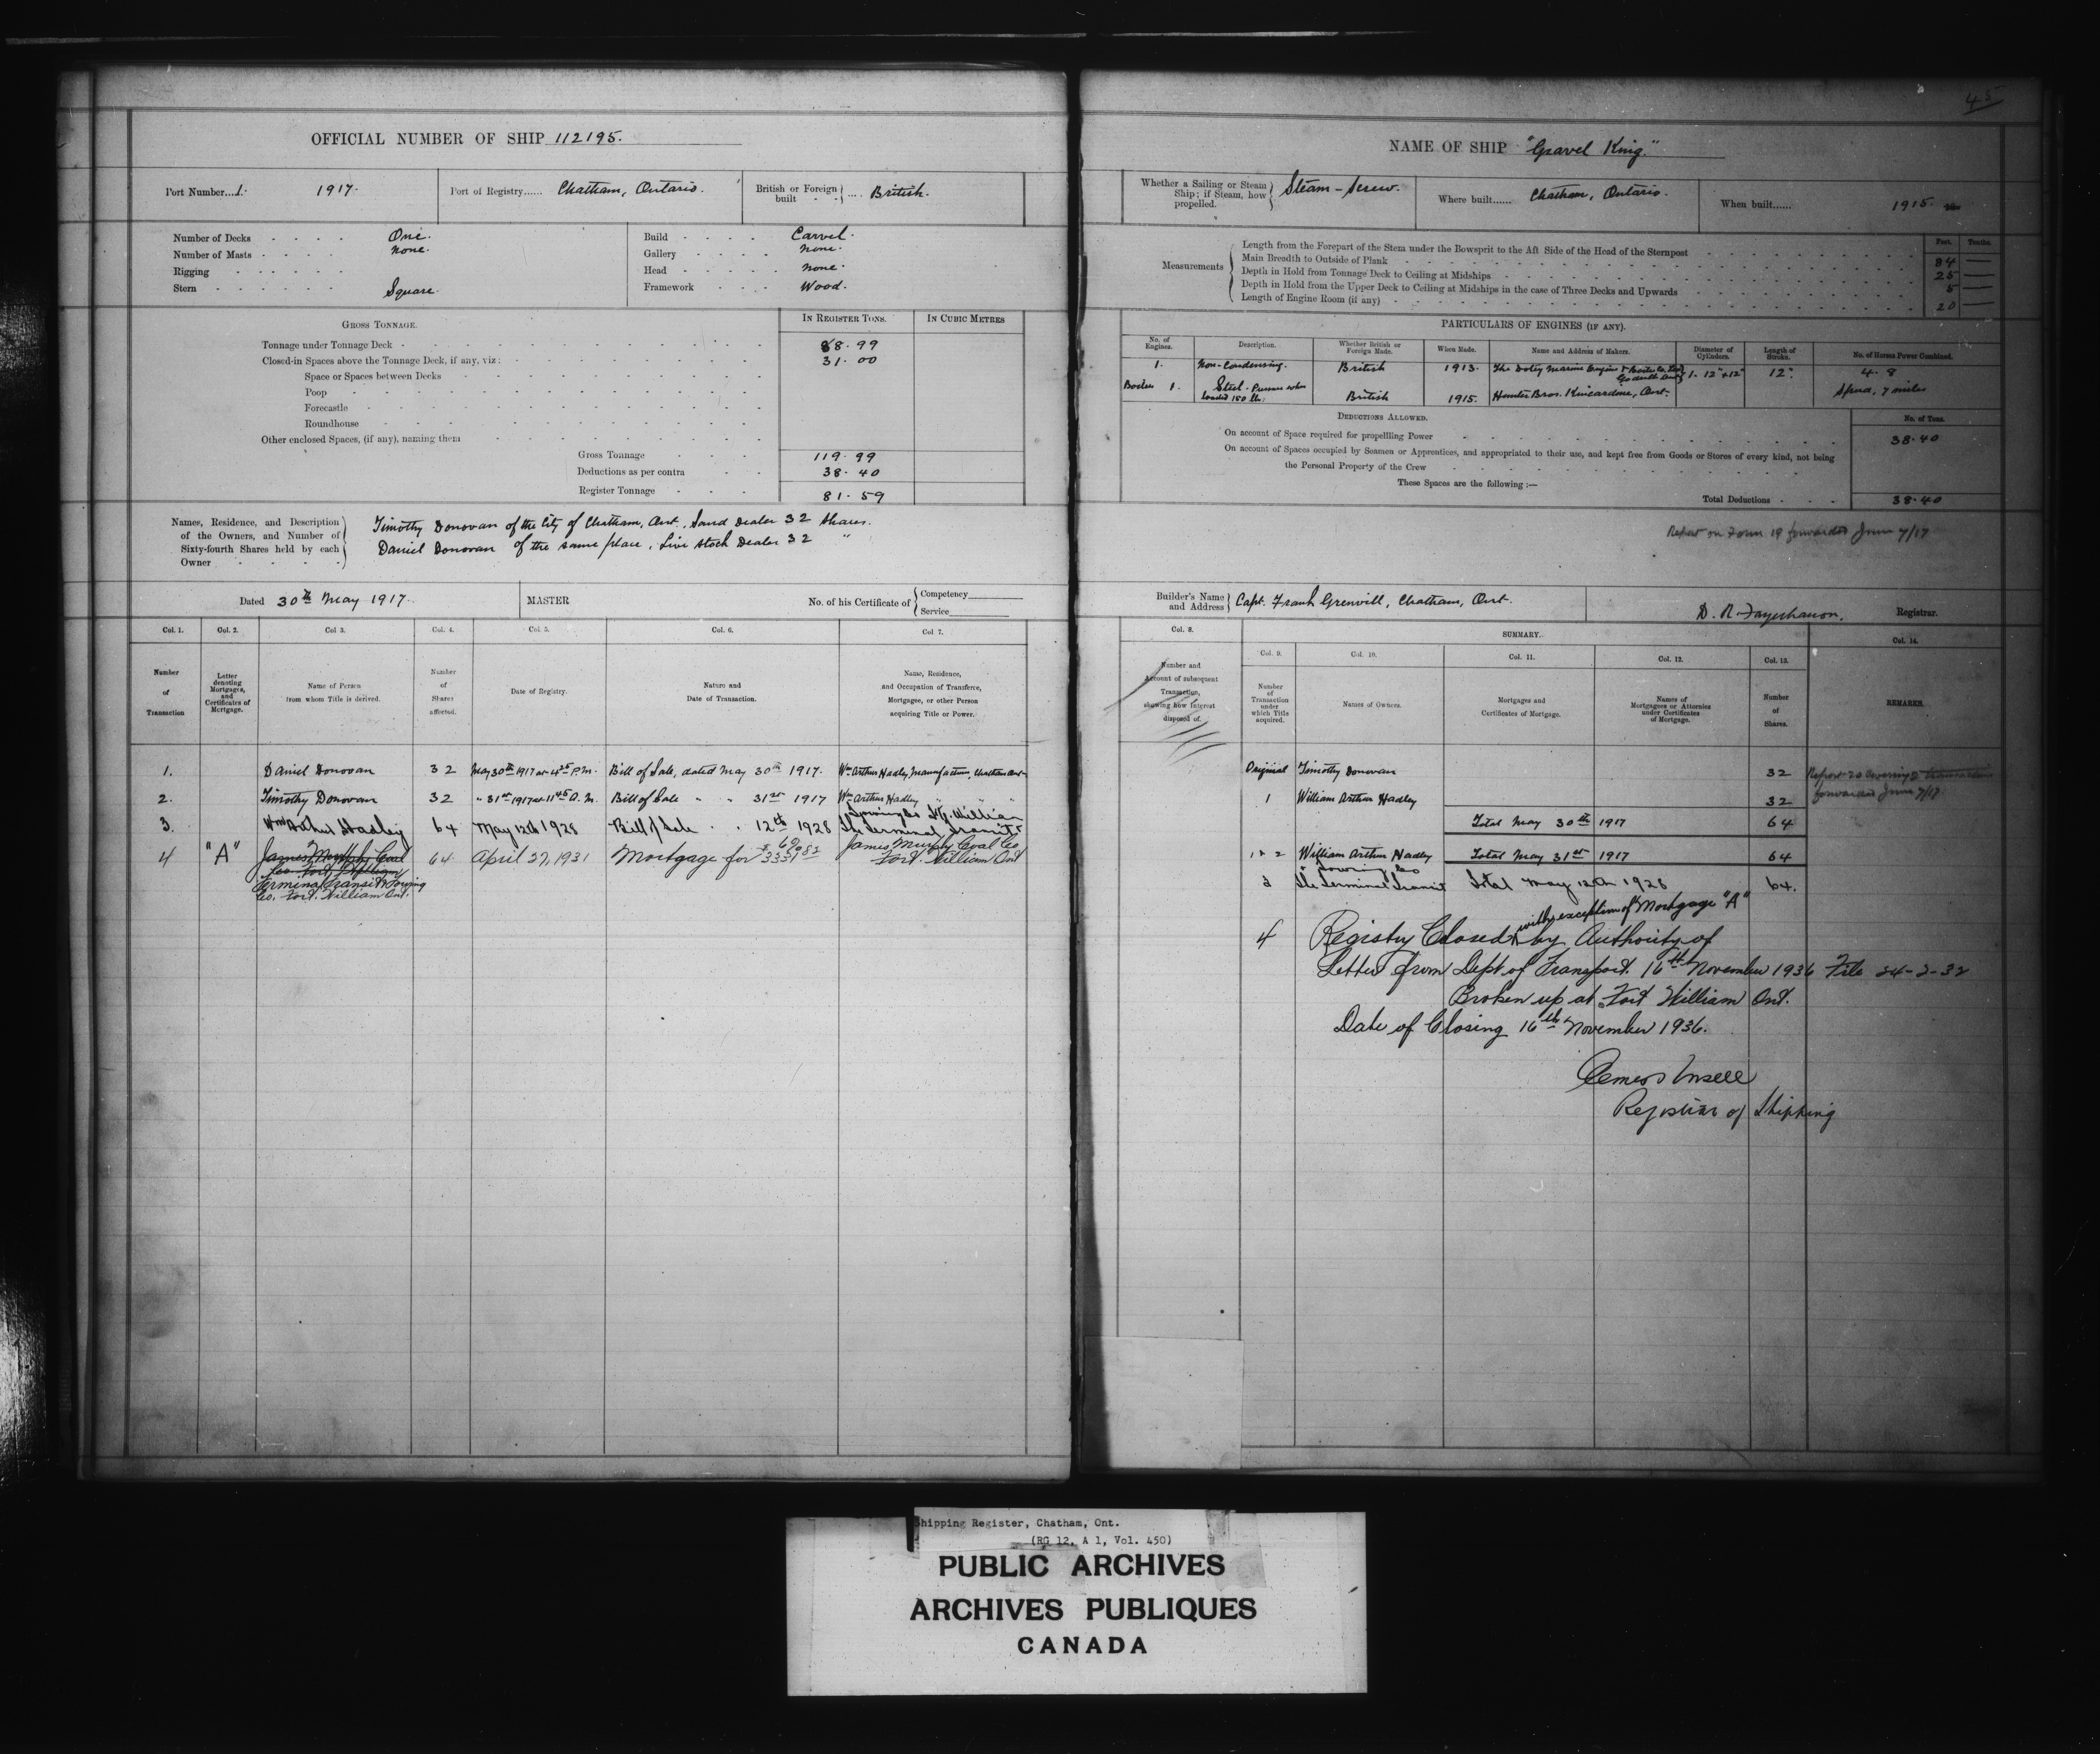 45
OFFICIAL NUMBER OF SHIP 112195.
Port Number...1. 1917.
Port of Registry...... Chatham, Ontario.
British or Foreign built - - } .... British.
Number of Decks - - - - One.
Number of Masts - - - - None.
Rigging - - - - - -
Stern - - - - - - Square.
Build - - - - Carvel.
Gallery - - - - None.
Head - - - - - None.
Framework - - - Wood.
GROSS TONNAGE.
IN REGISTER TONS.
IN CUBIC METRES
Tonnage under Tonnage Deck - 88.99
Closed-in Spaces above the Tonnage Deck, if any, viz: 31.00
Space or Spaces between Decks
Poop
Forecastle
Roundhouse
Other enclosed Spaces, (if any), naming them
Gross Tonnage - - - 119.99
Deductions as per contra - - 38.40
Register Tonnage - - - 81.59
Names, Residence, and Description of the Owners, and Number of Sixty-fourth Shares held by each Owner
Timothy Donovan of the City of Chatham, Ont., Sand Dealer 32 Shares.
Daniel Donovan of the same place, Live Stock Dealer 32 "
Dated 30th May 1917.
MASTER
No. of his Certificate of { Competency
Service
Col. 1. Col. 2. Col. 3. Col. 4. Col. 5. Col. 6. Col 7.
Number of Transaction
Letter denoting Mortgages, and Certificates of Mortgage.
Name of Person from whom Title is derived.
Number of Shares affected.
Date of Registry.
Nature and Date of Transaction.
Name, Residence, and Occupation of Transferee, Mortgagee, or other Person acquiring Title or Power.
1. Daniel Donovan 32 May 30th 1917 at 4.25 P.M. Bill of Sale, dated May 30th 1917. Wm Arthur Hadley, Manufacturer, Chatham Ont
2. Timothy Donovan 32 " 31st 1917 at 11.45 A.M. Bill of Sale " " 31st 1917 Wm Arthur Hadley " "
3. Wm Arthur Hadley 64 May 12th 1928 Bill of Sale " " 12th 1928 The Terminal Transit & Towing Co Ft. William
4 "A" James Murphy Coal Co. Fort William 64 April 27, 1931 Mortgage for James Murphy Coal Co Fort William Ont
Terminal Transit & Towing
Co. Fort William Ont.
NAME OF SHIP "Gravel King."
Whether a Sailing or Steam Ship; if Steam, how propelled. } Steam-Screw.
Where built...... Chatham, Ontario.
When built...... 1915.
Measurements
Feet. Tenths.
Length from the Forepart of the Stem under the Bowsprit to the Aft Side of the Head of the Sternpost 84 —
Main Breadth to Outside of Plank 25 —
Depth in Hold from Tonnage Deck to Ceiling at Midships 5 —
Depth in Hold from the Upper Deck to Ceiling at Midships in the case of Three Decks and Upwards
Length of Engine Room (if any) 20 —
PARTICULARS OF ENGINES (IF ANY).
No. of Engines. Description. Whether British or Foreign Made. When Made. Name and Address of Makers. Diameter of Cylinders. Length of Stroke. No. of Horse Power Combined.
1. Non-Condensing. British 1913. The Doty Marine Engine & Boiler Co. Ltd Goderich Ont 1. 12" + 12" 12". 4.8
Boiler 1. Steel. Pressure when loaded 150 lbs. British 1915. Hunter Bros. Kincardine, Ont. Speed, 7 miles
DEDUCTIONS ALLOWED.
No. of Tons.
On account of Space required for propelling Power 38.40
On account of Spaces occupied by Seamen or Apprentices, and appropriated to their use, and kept free from Goods or Stores of every kind, not being
the Personal Property of the Crew
These Spaces are the following :—
Total Deductions - - - 38.40
Report on Form 19 forwarded June 7/17
Builder's Name and Address } Capt. Frank Grenvill, Chatham, Ont.
Registrar.
Col. 8. SUMMARY. Col. 14.
Col. 9. Col. 10. Col. 11. Col. 12. Col. 13.
Number and Account of subsequent Transaction, showing how Interest disposed of.
Number of Transaction under which Title acquired.
Names of Owners.
Mortgages and Certificates of Mortgage.
Names of Mortgagees or Attornies under Certificates of Mortgage.
Number of Shares.
REMARKS.
Original Timothy Donovan 32 Report 20 covering 2 transactions
forwarded June 7/17.
1 William Arthur Hadley 32
Total May 30th 1917 64
1 & 2 William Arthur Hadley Total May 31st 1917 64
3 The Terminal Transit & Towing Co Total May 12th 1928 64.
with exception of Mortgage "A"
4 Registry Closed by Authority of
Letter from Dept of Transport. 16th November 1936 File 24-2-32
Broken up at Fort William Ont.
Date of Closing 16th November 1936.
Registrar of Shipping
Shipping Register, Chatham, Ont.
(RG 12, A 1, Vol. 450)
PUBLIC ARCHIVES
ARCHIVES PUBLIQUES
CANADA